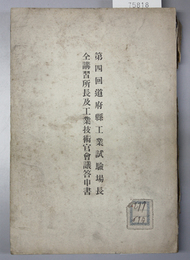 第四回道府縣工業試驗場長
仝講習所長及工業技術官會議答申書